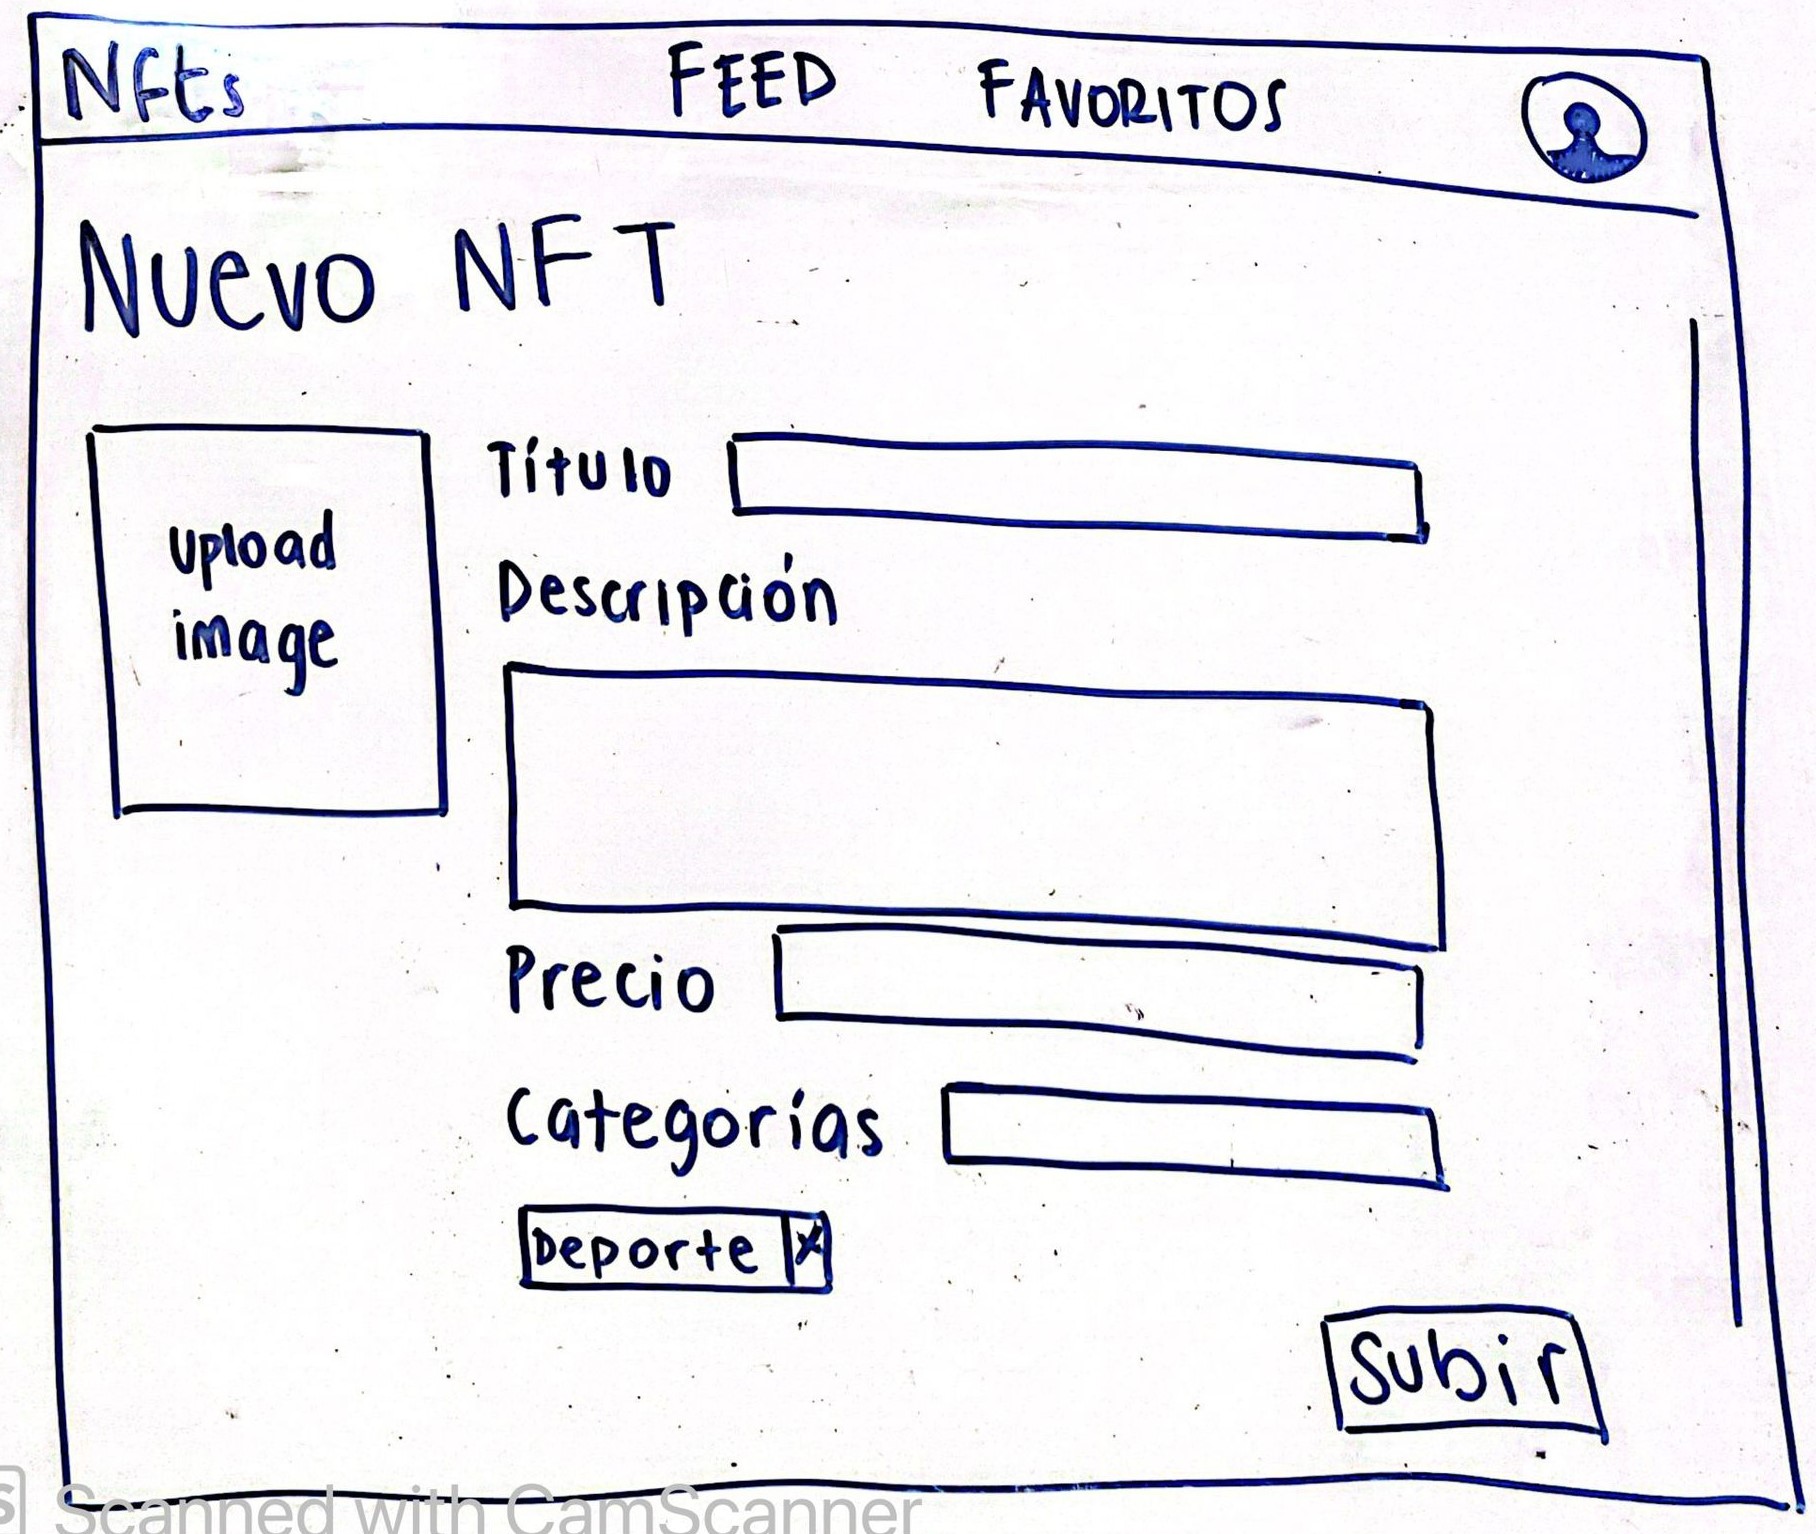 Nfts FEED FAVORITOS
Nuevo NFT
upload
image
Título
Descripción
Precio
Categorías
Deporte X
Subir
S Scanned with CamScanner